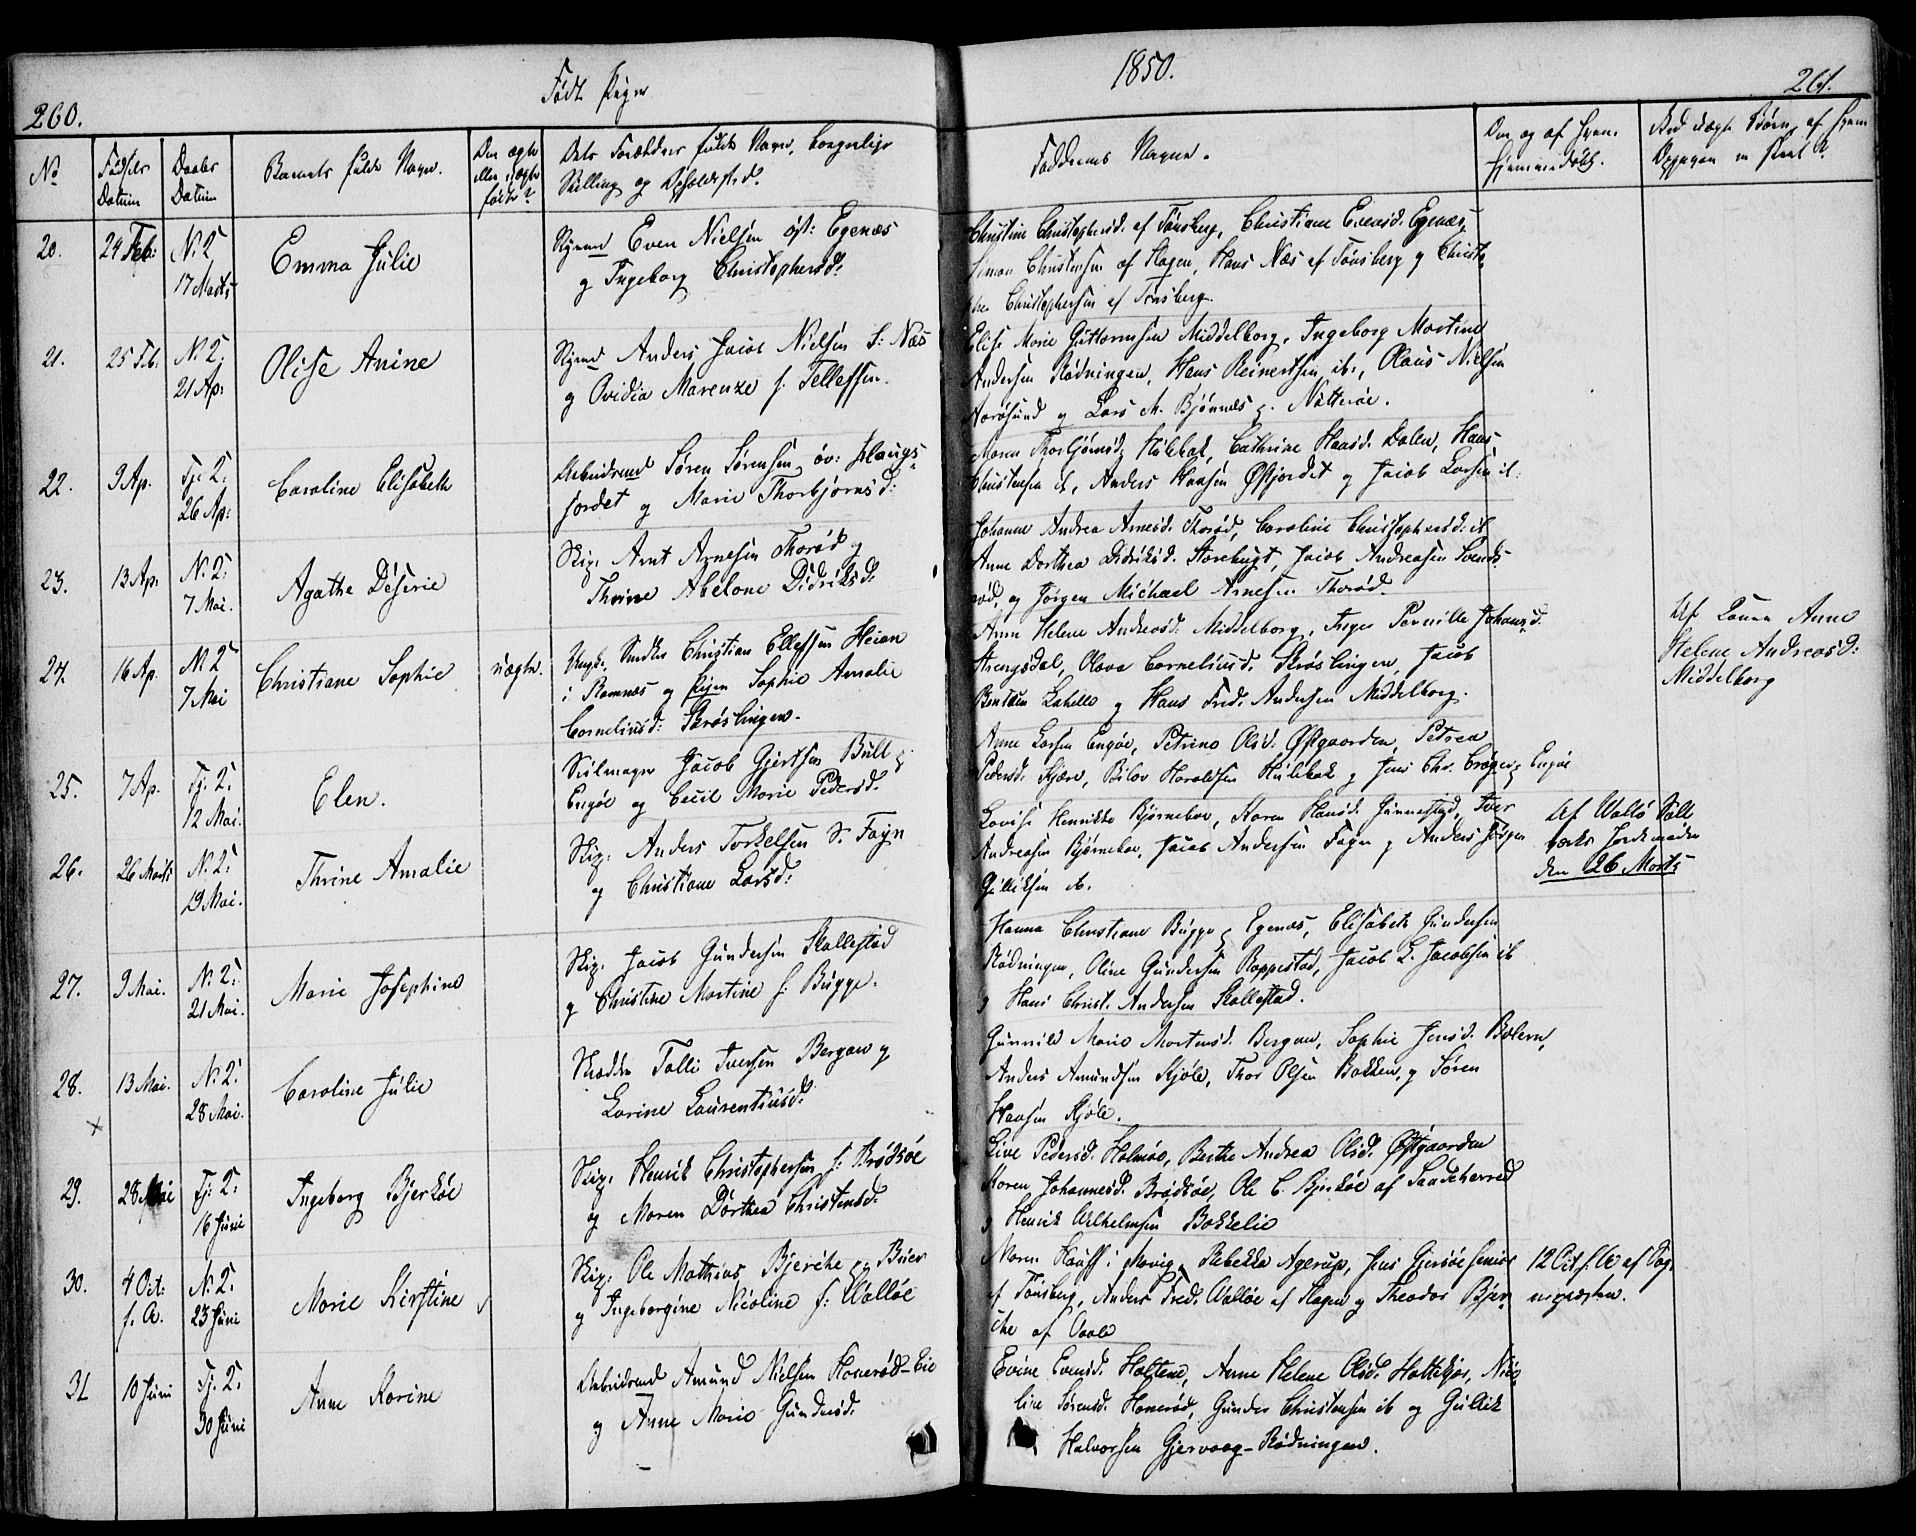 260.
Født Piger
1850.
261.
No
Fødsels Datum
Daabs Datum
Barnets fulde Navn.
Om ægte eller uægte født?
Dets Forældres fulde Navn, borgerlige
Stilling og Opholdssted.
Faddernes Navne.
Om og af hvem
hjemmedøbt.
Ved uægte Børn, af hvem
Opgaven er skeet?
20.
24 Feb:
N: 2
17 Marts
Emma Julie
Even Nielsen øst: Egenæs
og Ingeborg Christophersd.
Christine Christophersd. af Tønsberg, Christiane Evensd. Egenæs,
Simon Christensen af Slagen, Hans Næs af Tønsberg og Christo
Christophersen af Tønsberg.
21.
25 Feb.
N: 2
21 Ap:
Olise Anine
Anders Jacob Nielsen S: Næs
og Ovidia Marenze f. Tellefsen.
Elise Marie Guttormsen Middelborg, Ingeborg Martine
Andersen Rødningen, Hans Reinertsen ib., Olaus Nielsen
Aarøsund og Lars M. Bjønnæs p. Nøtterøe.
22.
9 Ap.
Tj. 2:
26 Ap:
Caroline Elisabeth
Arbeidsmd Søren Sørensen, øv: Haugs-
jordet og Marie Thorbjørnsd:
Maren Thorbjørnsd. Hulebak, Cathrine Hansd. Dalen, Hans
Christensen ib, Anders Hansen Østjordet og Jacob Larsen ib.
23.
13 Ap.
N. 2:
7 Mai.
Agathe Deserie
Skip. Arnt Arnesen Thorød og
Thrine Abelone Didriksd.
Johanne Andrea Arnesd. Thorød, Caroline Christophersd. ib
Anne Dorthea Didriksd. Storebugt, Jacob Andreasen Svends-
rød, og Jørgen Michael Arnesen Thorød.
24.
16 Ap.
N 2
7 Mai
Christiane Sophie
uægte.
Ungk. Smed Christian Ellefsen Heian
i Ramnæs og Pigen Sophie Amalie
Corneliusd: Skrøslingen.
Anne Helene Andreasd. Middelborg, Inger Pernille Johansd.
Strengsdal, Olava Corneliusd. Skrøslingen, Jacob
Berntsen Lahelle og Hans Fred. Andersen Middelborg.
Af Laura Anne
Helene Andreasd:
Middelborg
25.
7 Ap.
Tj. 2:
12 Mai.
Elen.
Seilmager Jacob Gjertsen Bull p.
Engøe og Cecil Marie Pedersd.
Anne Larsen Engøe, Petrine Olsd. Østgaarden, Petrea
Pedersd. Kjære, Bilov Haraldsen Hulebak og Jens Chr. Crøger p. Engøe
26.
26 Marts
N. 2:
19 Mai.
Thrine Amalie
Skip. Anders Torkelsen S. Føyn
og Christiane Larsd:
Lovise Henrikke Bjørneboe, Karen Hansd. Gunnestad, Iver
Andreasen Bjørneboe, Jacob Andersen Føyn og Anders Jørgen
Gulliksen ib.
Af Vallø Salt
værks Jordemoder
den 26 Marts
27.
9 Mai.
N. 2:
21 Mai.
Marie Josephine
Skip. Jacob Gundersen Skallestad
og Christine Martine f. Bugge.
Hanna Christiane Bugge p. Egenæs, Elisabeth Gundersen
Rødningen, Oline Gundersen Roppestad, Jacob L. Jacobsen ib
og Hans Christ. Andersen Skallestad.
28.
13 Mai.
N: 2:
28 Mai.
Caroline Julie
Skrædder Tolli Iversen Bergan og
Larine Laurentiusd.
Gunnild Marie Mortensd. Bergan, Sophie Jensd. Bolærn,
Anders Amundsen Kjøle, Thor Olsen Bakken, og Søren
Hansen Kjøle.
×
29.
28 Mai
Tj: 2:
16 Juni
Ingeborg Bjerkøe
Skip. Henrik Christophersen f: Brødsøe
og Maren Dorthea Christensd.
Live Pedersd. Holmøe, Berthe Andrea Olsd. Østgaarden
Karen Johannesd. Brødsøe, Ole C. Bjerkøe af Sandeherred
og Henrik Wilhelmsen Bakkelie
30.
4 Oct:
f. A.
N. 2:
23 Juni
Marie Kirstine
Skip: Ole Mathias Bjerche p. Buer
og Ingeborgine Nicoline f: Valløe
Maren Hauff i Narvig, Rebekka Agerup, Jens Gjersøe senior
af Tønsberg, Anders Fred. Valløe af Slagen og Theodor Bjer
che af Vaale
12 Oct. f. A. af Sog-
nepræsten.
31
10 Juni
Tj. 2:
30 Juni
Anne Karine
Arbeidsmd Amund Nielsen Honerød-Eie
og Anne Marie Gundersd.
Evine Evensd. Holtene, Anne Helene Olsd. Holtekjær, Nico
line Sørensd. Honerød, Gunder Christensen ib og Gullik
Halvorsen Gjervaag-Rødningen.